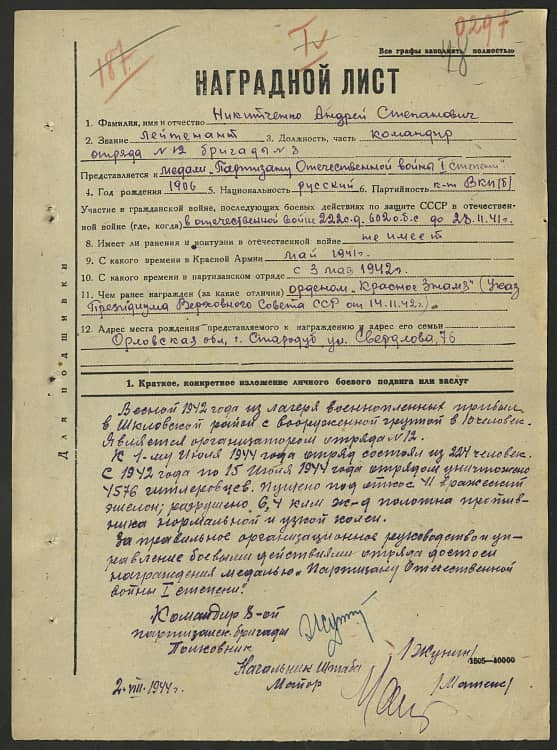 187.
IV
0297
48
Все графы заполнять полностью
НАГРАДНОЙ ЛИСТ
1. Фамилия, имя и отчество Никитченко Андрей Степанович
2. Звание Лейтенант 3. Должность, часть командир
отряда №12 бригады №8
Представляется к медали „Партизану Отечественной войны I степени"
4. Год рождения 1906 5. Национальность русский 6. Партийность к-т ВКП(б)
Участие в гражданской войне, последующих боевых действиях по защите СССР и отечествен-
ной войне (где, когда) в отечественной войне 222 с.д. 602 о.б.с до 28.11.41г.
8. Имеет ли ранения и контузии в отечественной войне не имеет
9. С какого времени в Красной Армии май 1941г.
10. С какого времени в партизанском отряде с 3 мая 1942г.
11. Чем ранее награжден (за какие отличия) орденом „Красное Знамя" (Указ
Президиума Верховного Совета ССР от 14.11.42г.)
12. Адрес места рождения представляемого к награждению и адрес его семьи
Орловская обл, г. Стародуб ул. Свердлова, 76
Для подшивки
1. Краткое, конкретное изложение личного боевого подвига или заслуг
Весной 1942 года из лагеря военнопленных прибыл
в Шкловский район с вооруженной группой в 10 человек.
Является организатором отряда №12.
К 1-му Июня 1944 года отряд состоял из 224 человек.
С 1942 года по 15 Июня 1944 года отрядом уничтожено
4576 гитлеровцев. Пущено под откос 41 вражеский
эшелон; разрушено 6,4 клм ж-д полотна против-
ника нормальной и узкой колеи.
За правильное организационное руководство и уп-
равление боевыми действиями отряда достоин
награждения медалью „Партизану Отечественной
войны I степени".
Командир 8-ой
партизанск. бригады
Полковник
/Жунин/
1505—40000
Начальник Штаба
Майор
2.VIII.1944г.